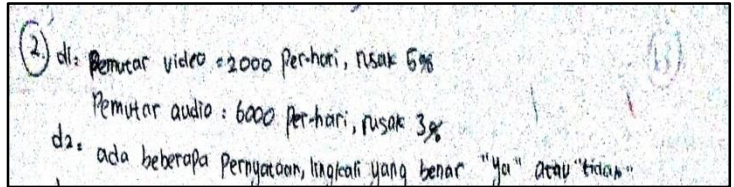 2. d1: Pemutar video = 2000 Per-hari, rusak 5%
Pemutar audio : 6000 per-hari, rusak 3%
d2: ada beberapa Pernyataan, lingkari yang benar "ya" atau "tidak"